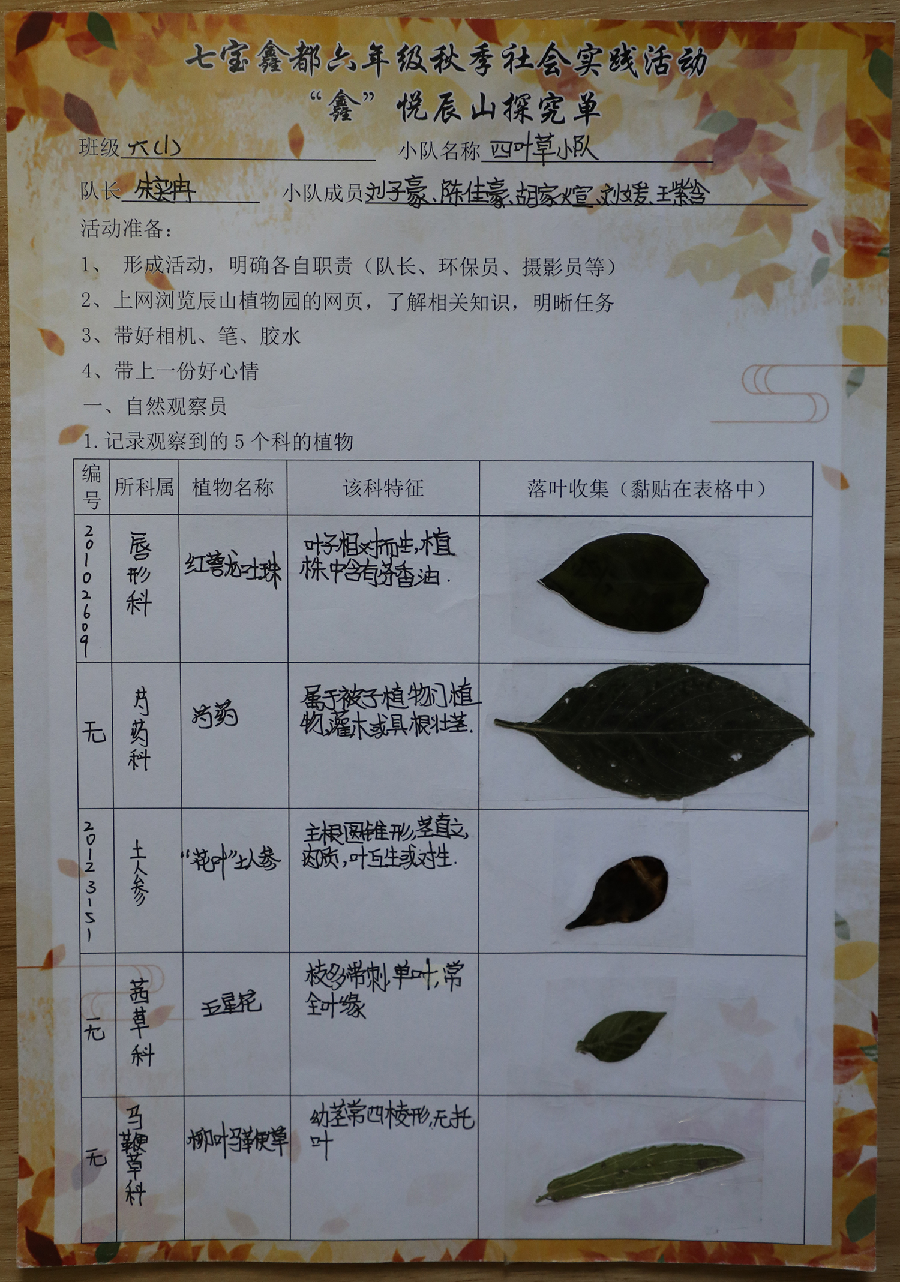 七宝鑫都六年级秋季社会实践活动
“鑫”悦辰山探究单
班级 六(1) 小队名称 四叶草小队
队长 小队成员 刘子豪、陈佳豪、胡家煊、刘媛、王紫含
活动准备：
1、 形成活动，明确各自职责（队长、环保员、摄影员等）
2、上网浏览辰山植物园的网页，了解相关知识，明晰任务
3、带好相机、笔、胶水
4、带上一份好心情
一、自然观察员
1.记录观察到的5个科的植物
编号 所科属 植物名称 该科特征 落叶收集（黏贴在表格中）
20102609 唇形科 红萼龙吐珠 叶子相对而生，植
株中含有芳香油.
无 芍药科 芍药 属于被子植物门植
物，灌木或具根壮茎.
20123151 土人参 “花叶”土人参 主根圆锥形，茎直立，
肉质，叶互生或对生.
无 茜草科 五星花 枝多常刺，单叶，常
全叶缘
无 马鞭草科 柳叶马鞭草 幼茎常四棱形，无托
叶